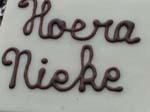 Hoera
Nieke